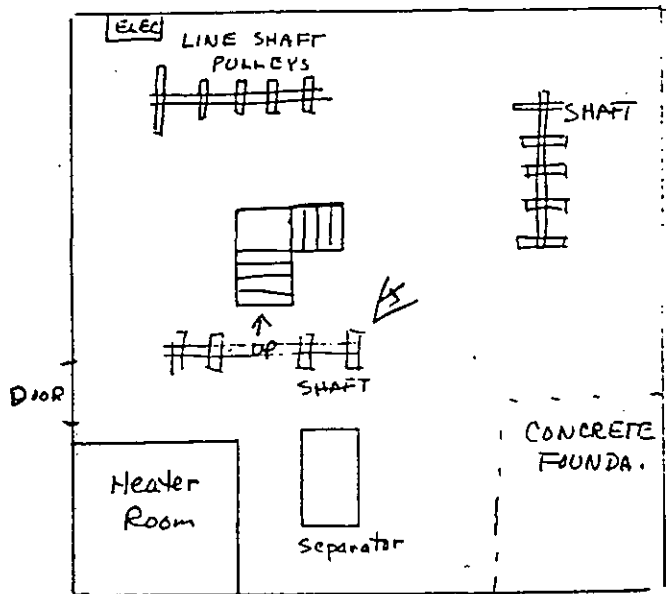 ELEC
LINE SHAFT
PULLEYS
SHAFT
UP
SHAFT
DOOR
CONCRETE
FOUNDA.
Heater
Room
Separator